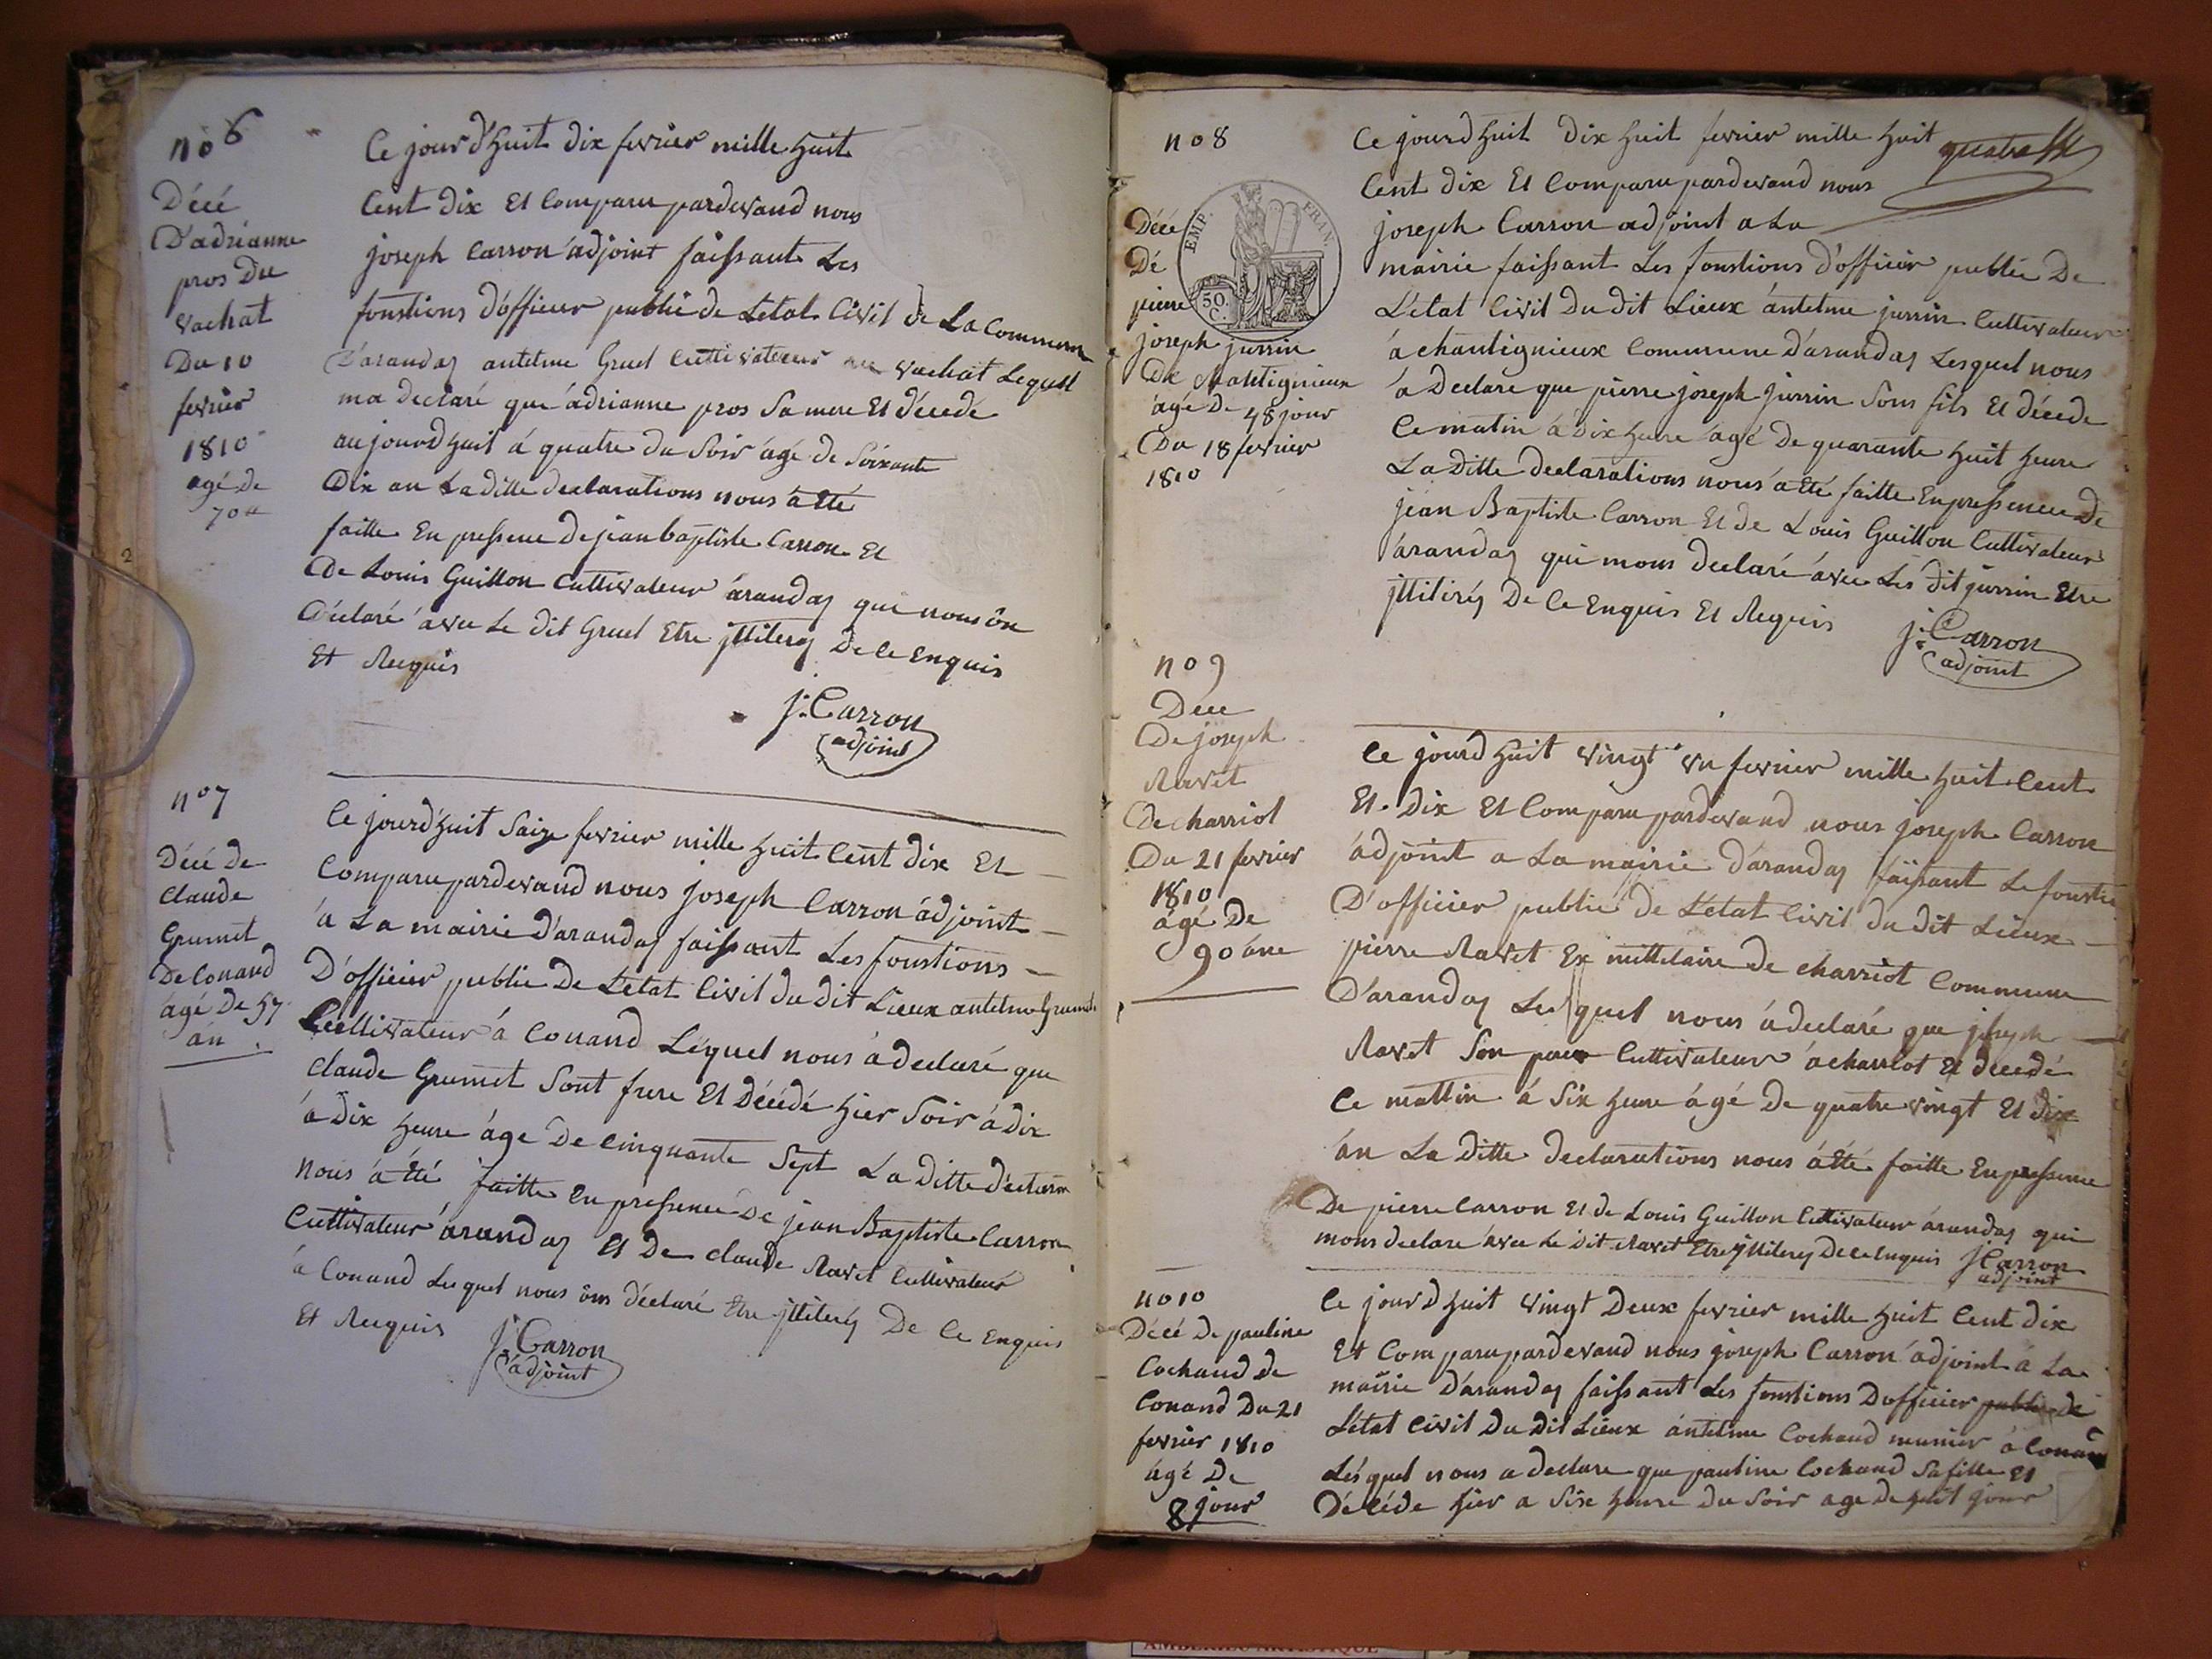 no 6
Décé
D'adrianne
pros du
vachat
Du 10
fevrier
1810
agé de
70 a
Ce jourd'huit dix fevrier mille huit
Cent dix Et Comparu pardevand nous
joseph Carron adjoint faissant Les
fonstions d'officier publie de Letat Civil de La Commune
D'arandas antelme Gruel Cultivateur au vachat Lequel
ma declaré que adrianne pros Sa mere Et décédé
aujourdhuit á quatre du Soir ágé de Soixante
Dix an La ditte declarations nous a Eté
faitte En pressence de jean baptiste Carron Et
De Louis Guillon Cultivateur árandas qui nous ôn
Déclaré avec Le dit Gruel Etre jlliterés De Ce Enquis
Et Requis
j. Carron
adjoint
no 7
Décé de
Claude
Grumet
De Conand
ágé De 57
án
Ce jourd'huit Saize fevrier mille huit Cent dix Et
Comparu pardevand nous joseph Carron ádjoint
á La mairie D'arandas faissant Les fonstions
D'officier publie De Létat Civil du dit Lieux antelme Grumet
Cultivateur á Conand Léquel nous á declaré que
Claude Grumet Sont frere Et Décédé hier Soir á dix
á Dix heure áge De Cinquante Sept La ditte déclaron
nous á Eté faitte En pressence De jean Baptiste Carron
Cultivateur árandas Et De claude Ravet Cultivateur
á Conand Lesquel nous ôns déclaré Etre jlliterés De Ce Enquis
Et Requis
j. Carron
adjoint
2
no 8
Décé
Dé
pierre
joseph jurrin
De Chantignieux
ágé De 48 jour
Du 18 fevrier
1810
EMP. FRAN.
50.
C.
Ce jourdhuit Dix huit fevrier mille huit
quatre
Cent dix Et Comparu pardevand nous
joseph Carron adjoint a La
mairie faissant Les fonstions D'officier publie De
L'état Civil Du dit Lieux ántelme jurrin Cultivateur
á chantignieux Commune D'arandas Lesquel nous
á Declaré que pierre joseph jurrin Sons fils Et décedé
Ce matin á Dix heure ágé De quarante huit heure
La Ditte declarations nous á Eté faitte En pressence De
jean Baptiste Carron Et de Louis Guillon Cultivateur
árandas qui mons declaré ávec Les dit jurrin Etre
jllitirés De Ce Enquis Et Requis
j. Carron
adjoint
no 9
Déce
De joseph
Ravet
De charriot
Du 21 fevrier
1810
ágé De
90 áne
Ce jourdhuit vingt un fevrier mille huit Cent
Et Dix Et Comparu pardevand nous joseph Carron
ádjoint a La mairie d'arandas faissant Le fonstio
D'officier publie de L'état Civil du dit Lieux
pierre Ravet Ex mittelaire De charriot Commune
D'arandas Lesquel nous á declaré que joseph
Ravet Son pere Cultivateur á charriot Et decedé
Ce mattin á Six heure ágé De quatre vingt Et dix
án La Ditte declarations nous á Eté faitte En pressence
De pierre Carron Et de Louis Guillon Cultivateur árandas qui
mons declare ávec Le Dit Ravet Etre jlliterés De Ce Enquis j Carron
adjoint
no 10
Décé De pauline
Cochand de
Conand Du 21
fevrier 1810
ágé De
8 jour
Ce jourdhuit vingt Deux fevrier mille huit Cent dix
Et Comparu pardevand nous joseph Carron ádjoint á La
mairie D'arandas faissant Les fonstions D'officier publie de
L'état Civil Du Dit Lieux ántelme Cochand munier á Conand
Lésquel nous a declare que pauline Cochand Sa fille Et
Décéde hier a Six heure Du Soir age De huit jour
AMBERIEU ARTISTIQUE